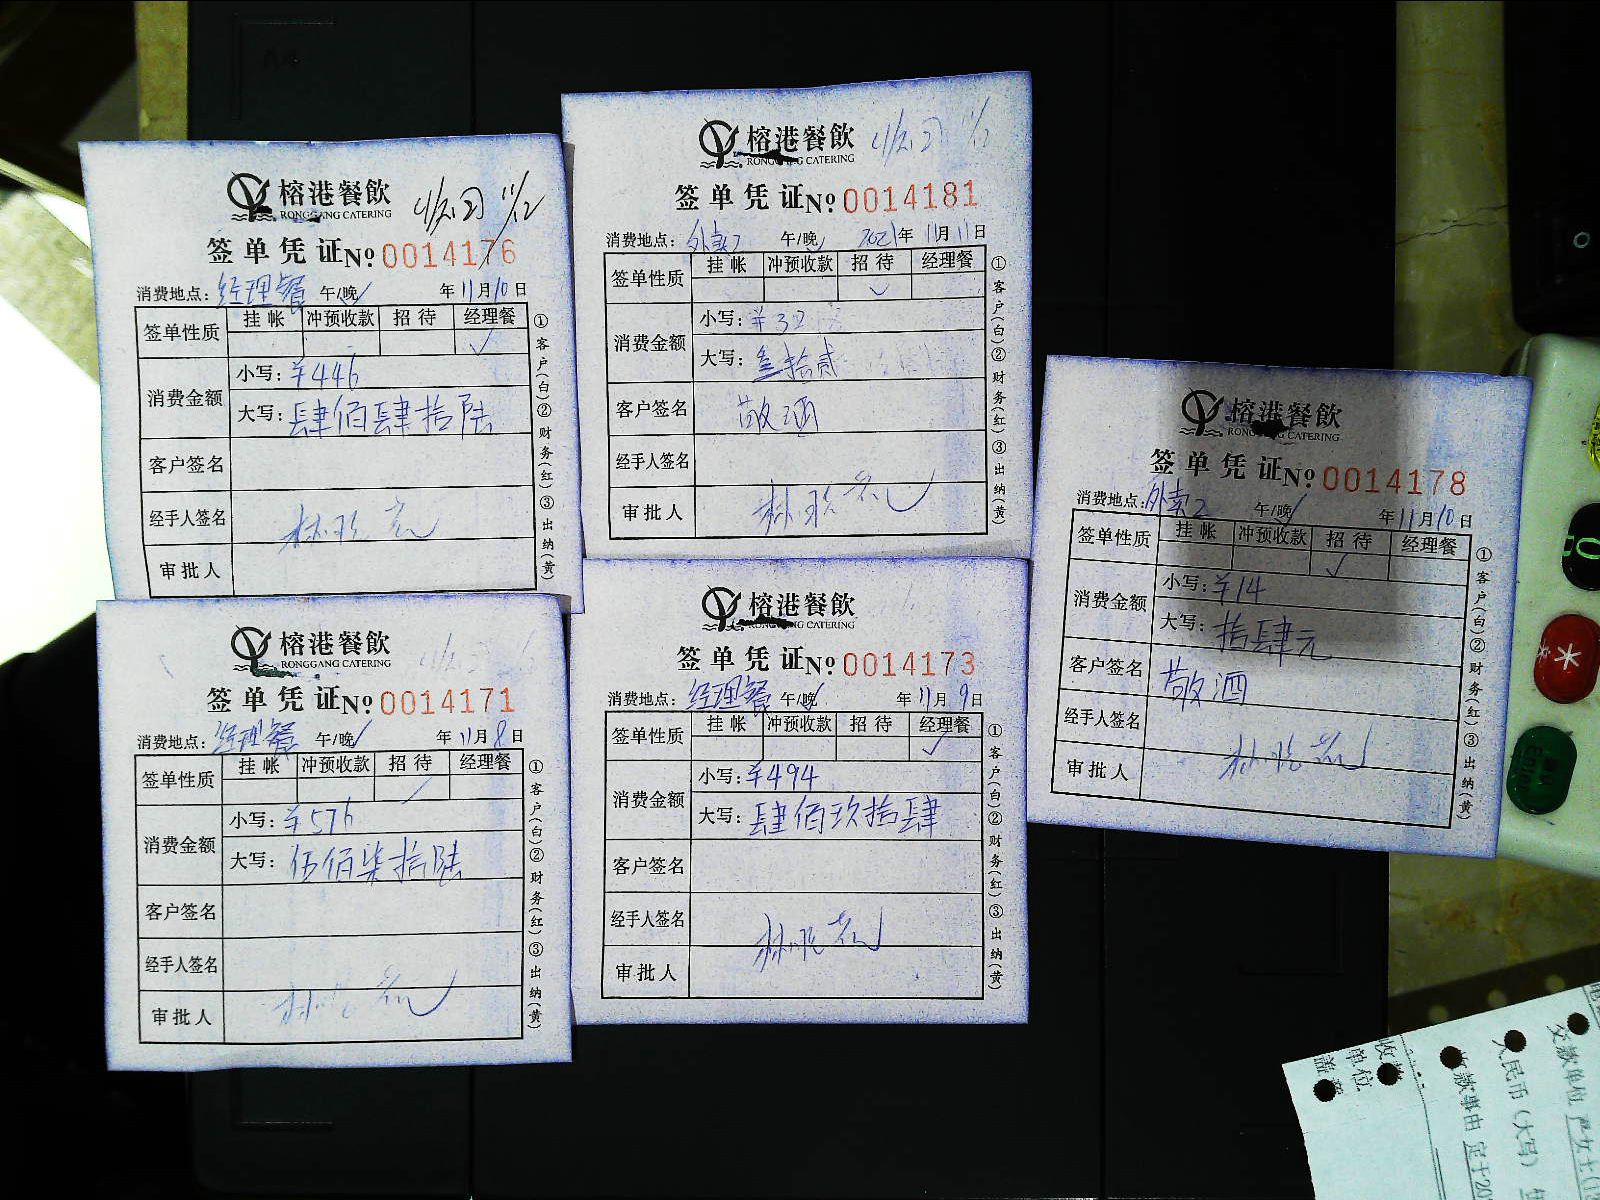 榕港餐飲
RONGGANG CATERING
签单凭证No 0014176
消费地点：经理餐 午/晚✓ 年11月10日
签单性质 挂帐 冲预收款 招待 经理餐
✓
消费金额 小写：￥446
大写：肆佰肆拾陆
客户签名
经手人签名
审批人
①客户(白)②财务(红)③出纳(黄)
榕港餐飲
RONGGANG CATERING
签单凭证No 0014181
消费地点：外卖2 午/晚✓ 2021年11月11日
签单性质 挂帐 冲预收款 招待 经理餐
✓
消费金额 小写：￥32
大写：叁拾贰
客户签名 敬酒
经手人签名
审批人
①客户(白)②财务(红)③出纳(黄)
榕港餐飲
RONGGANG CATERING
签单凭证No 0014178
消费地点：外卖2 午/晚✓ 年11月10日
签单性质 挂帐 冲预收款 招待 经理餐
✓
消费金额 小写：￥14
大写：拾肆元
客户签名 敬酒
经手人签名
审批人
①客户(白)②财务(红)③出纳(黄)
榕港餐飲
RONGGANG CATERING
签单凭证No 0014171
消费地点：经理餐 午/晚✓ 年11月8日
签单性质 挂帐 冲预收款 招待 经理餐
✓
消费金额 小写：￥576
大写：伍佰柒拾陆
客户签名
经手人签名
审批人
①客户(白)②财务(红)③出纳(黄)
榕港餐飲
RONGGANG CATERING
签单凭证No 0014173
消费地点：经理餐 午/晚✓ 年11月9日
签单性质 挂帐 冲预收款 招待 经理餐
✓
消费金额 小写：￥494
大写：肆佰玖拾肆
客户签名
经手人签名
审批人
①客户(白)②财务(红)③出纳(黄)
交款单位 严女士
人民币（大写）
收款事由 定于20
收款
单位
盖章